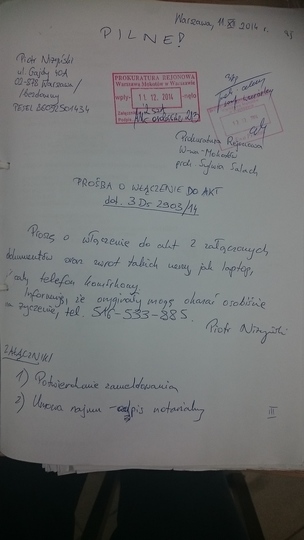 Warszawa, 11 XII 2014 r.
PILNE!
Piotr Niżyński
ul.
02-878 Warszawa /
bezdomny
PESEL
PROKURATURA REJONOWA
Warszawa Mokotów w Warszawie
11. 12. 2014
Prokuratura Rejonowa
W-wa-Mokotów
prok. Sylwia
PROŚBA O WŁĄCZENIE DO AKT
dot. 3 Ds 2903/14
Proszę o włączenie do akt 2 załączonych
dokumentów oraz zwrot takich rzeczy, jak laptop,
i telefon komórkowy.
Informuję, że oryginały mogę okazać osobiście
na życzenie, tel. 514-533-885.
Piotr Niżyński
ZAŁĄCZNIKI
1) Potwierdzenie zameldowania
2) Umowa najmu - odpis notarialny
III